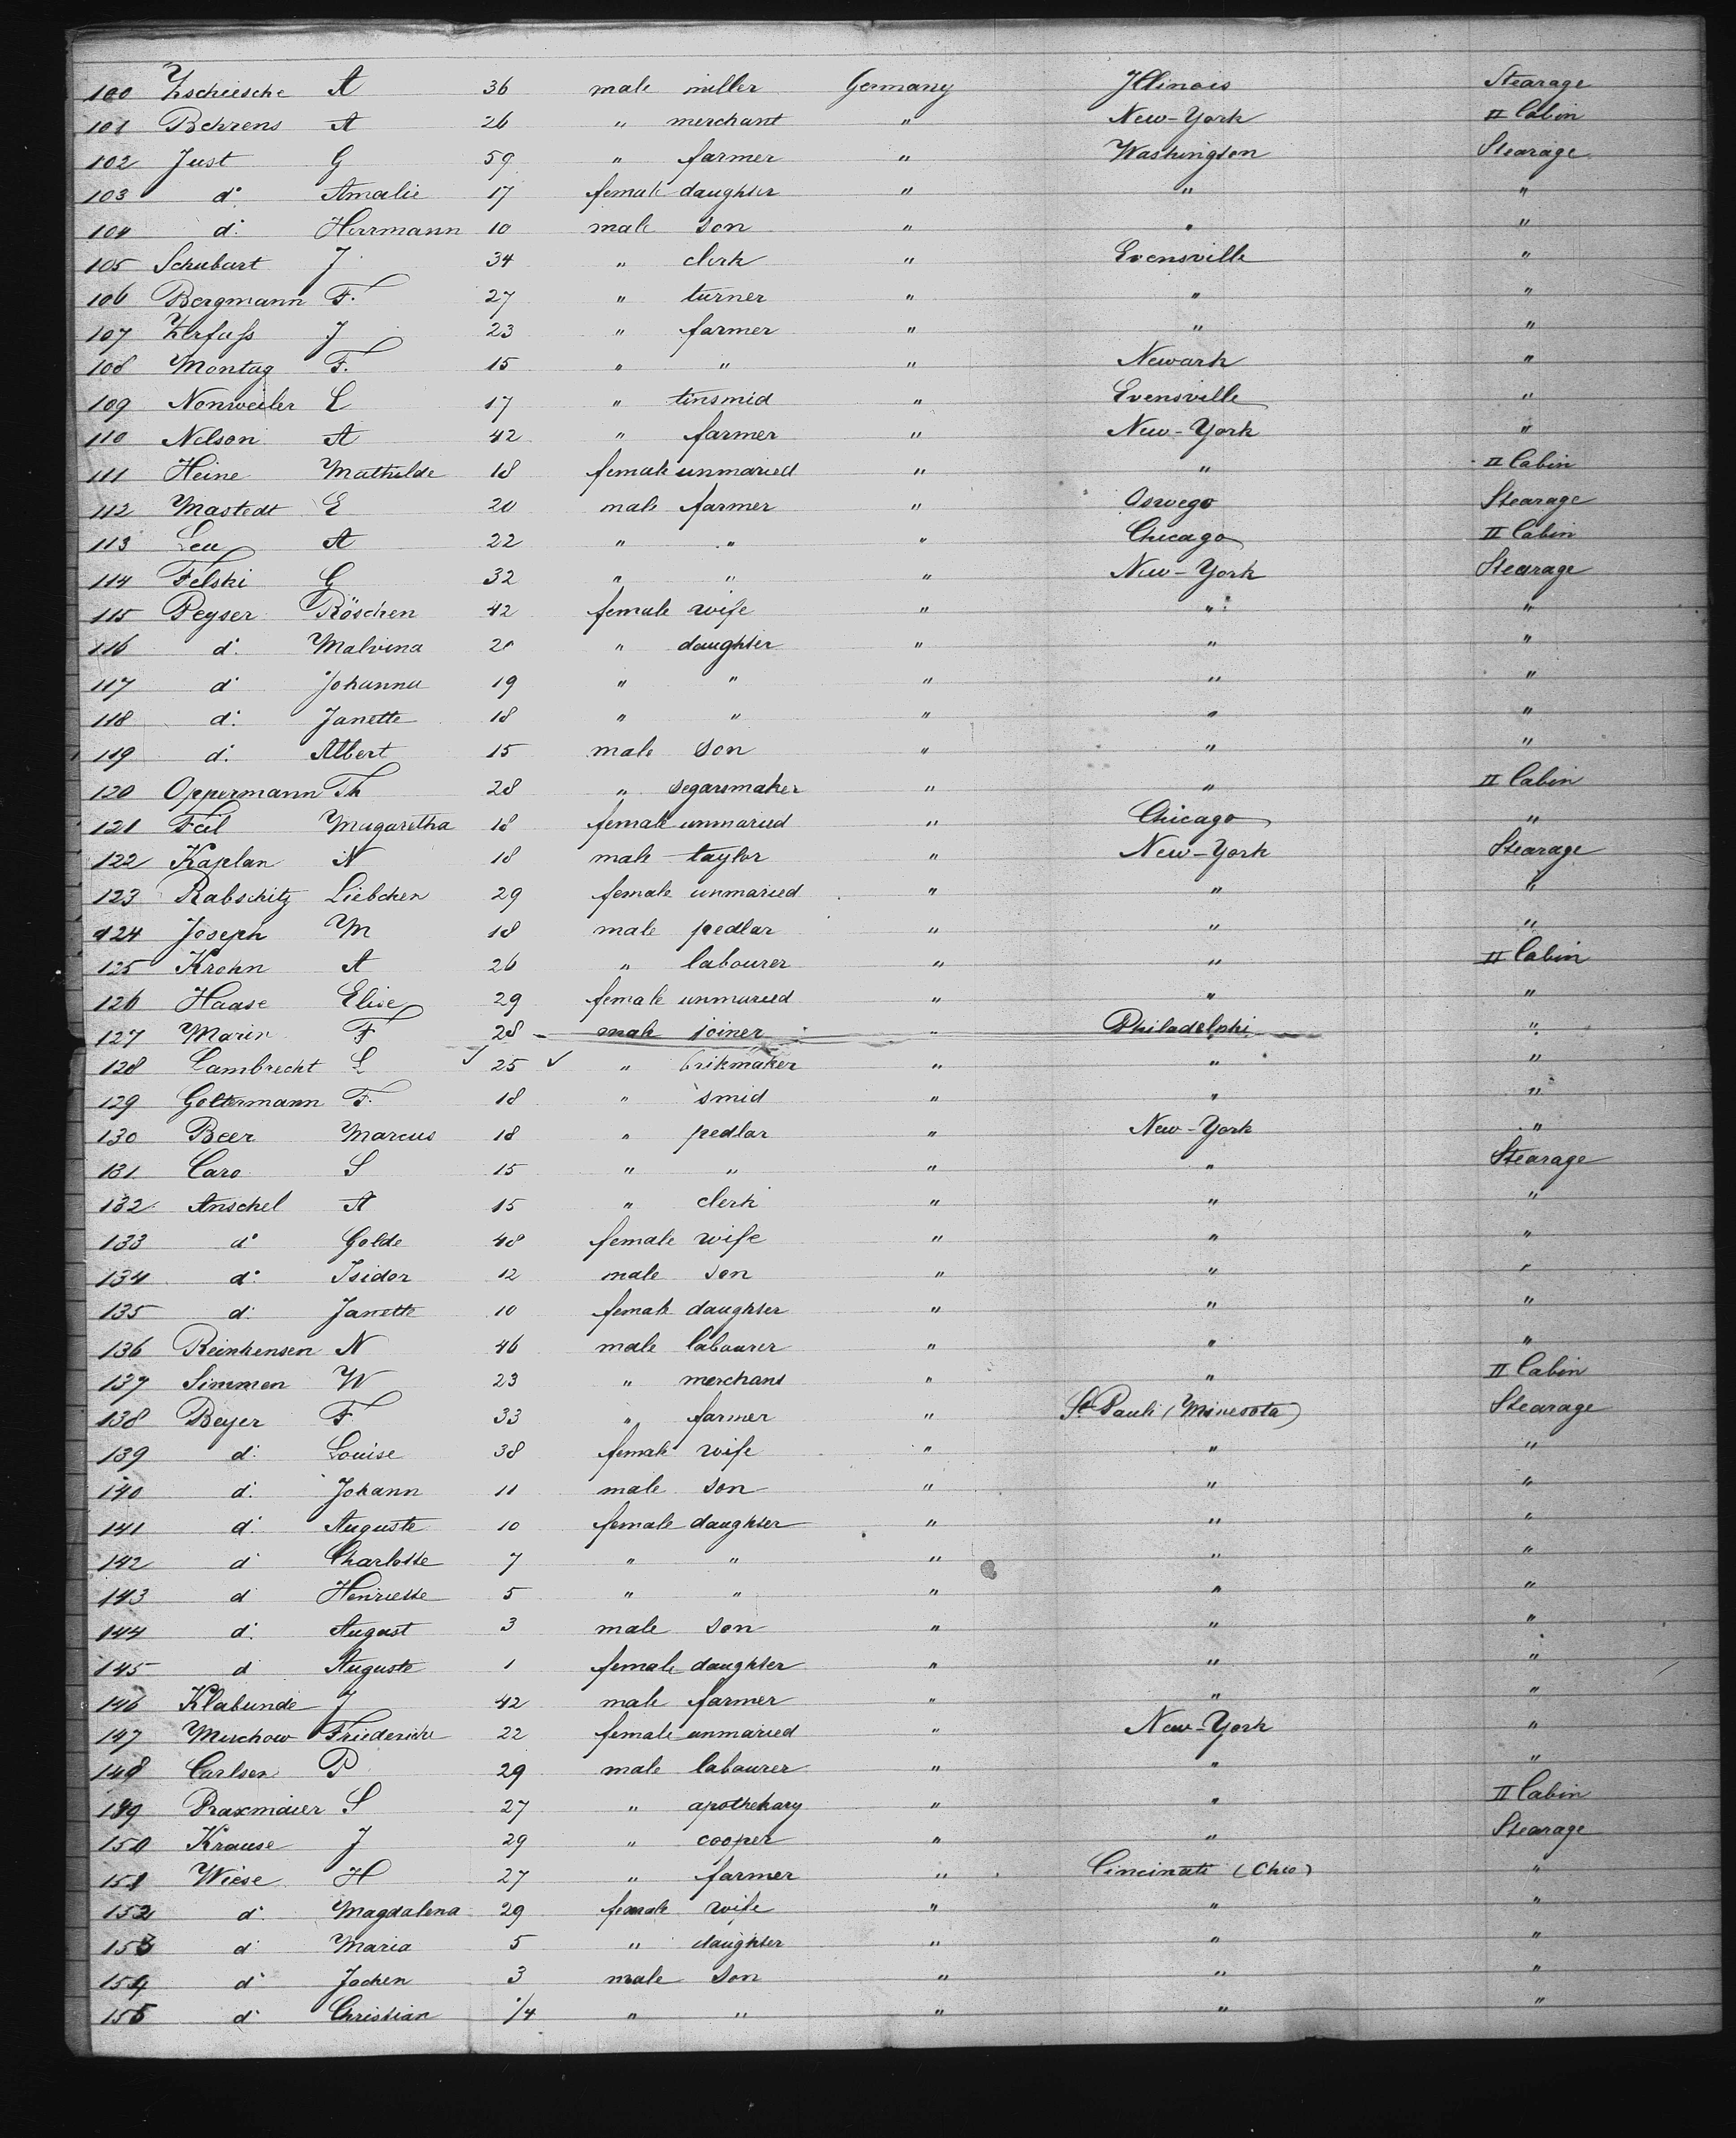 100 Zschiesche A 36 male miller Germany Illinois Stearage
101 Behrens A 26 " merchant " New-York II Cabin
102 Just G 59 " farmer " Washington Stearage
103 d° Amalie 17 female daughter " " "
104 d: Herrmann 10 male son " " "
105 Schubart J 34 " clerk " Evensville "
106 Bergmann F. 27 " turner " " "
107 Zerfuss J 23 " farmer " " "
108 Montag F. 15 " " " Newark "
109 Nonweiler L 17 " tinsmid " Evensville "
110 Nelson A 42 " farmer " New-York "
111 Heine Mathilde 18 female unmaried " " II Cabin
112 Mastedt E 20 male farmer " Oswego Stearage
113 Leu A 22 " " " Chicago II Cabin
114 Felski G 32 " " " New-York Stearage
115 Peyser Röschen 42 female wife " " "
116 d: Malvina 20 " daughter " " "
117 d: Johanna 19 " " " " "
118 d: Janette 18 " " " " "
119 d: Albert 15 male son " " "
120 Oppermann Th 28 " segarsmaker " " II Cabin
121 Feil Magaretha 18 female unmaried " Chicago "
122 Kaplan N 18 male taylor " New-York Stearage
123 Rabschitz Liebchen 29 female unmaried " " "
124 Joseph M 18 male pedlar " " "
125 Krohn A 26 " labourer " " II Cabin
126 Haase Elise 29 female unmaried " " "
127 Marin F 28 male joiner " Philadelphi "
128 Lambrecht L 25 " brikmaker " " "
129 Goltermann F. 18 " smid " " "
130 Beer Marcus 18 " pedlar " New-York "
131 Caro S 15 " " " " Stearage
132 Anschel A 15 " clerk " " "
133 d° Golde 48 female wife " " "
134 d° Isidor 12 male son " " "
135 d: Janette 10 female daughter " " "
136 Reinkensen N 46 male labourer " " "
137 Simmen W 23 " merchant " " II Cabin
138 Beyer F 33 " farmer " St Pauli (Minesota) Stearage
139 d: Louise 38 female wife " " "
140 d: Johann 11 male son " " "
141 d: Auguste 10 female daughter " " "
142 d: Charlotte 7 " " " " "
143 d Henriette 5 " " " " "
144 d: August 3 male son " " "
145 d Auguste 1 female daughter " " "
146 Klabunde J 42 male farmer " " "
147 Muchow Friedericke 22 female unmaried " New-York "
148 Carlsen P 29 male labourer " " "
149 Praxmaier S 27 " apothekary " " II Cabin
150 Krause J 29 " cooper " " Stearage
151 Wiese H 27 " farmer " Cincinati (Ohio) "
152 d: Magdalena 29 female wife " " "
153 d: Maria 5 " daughter " " "
154 d: Jochen 3 male son " " "
155 d: Christian 1/4 " " " " "